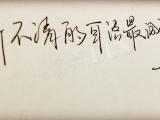 不清的耳语最